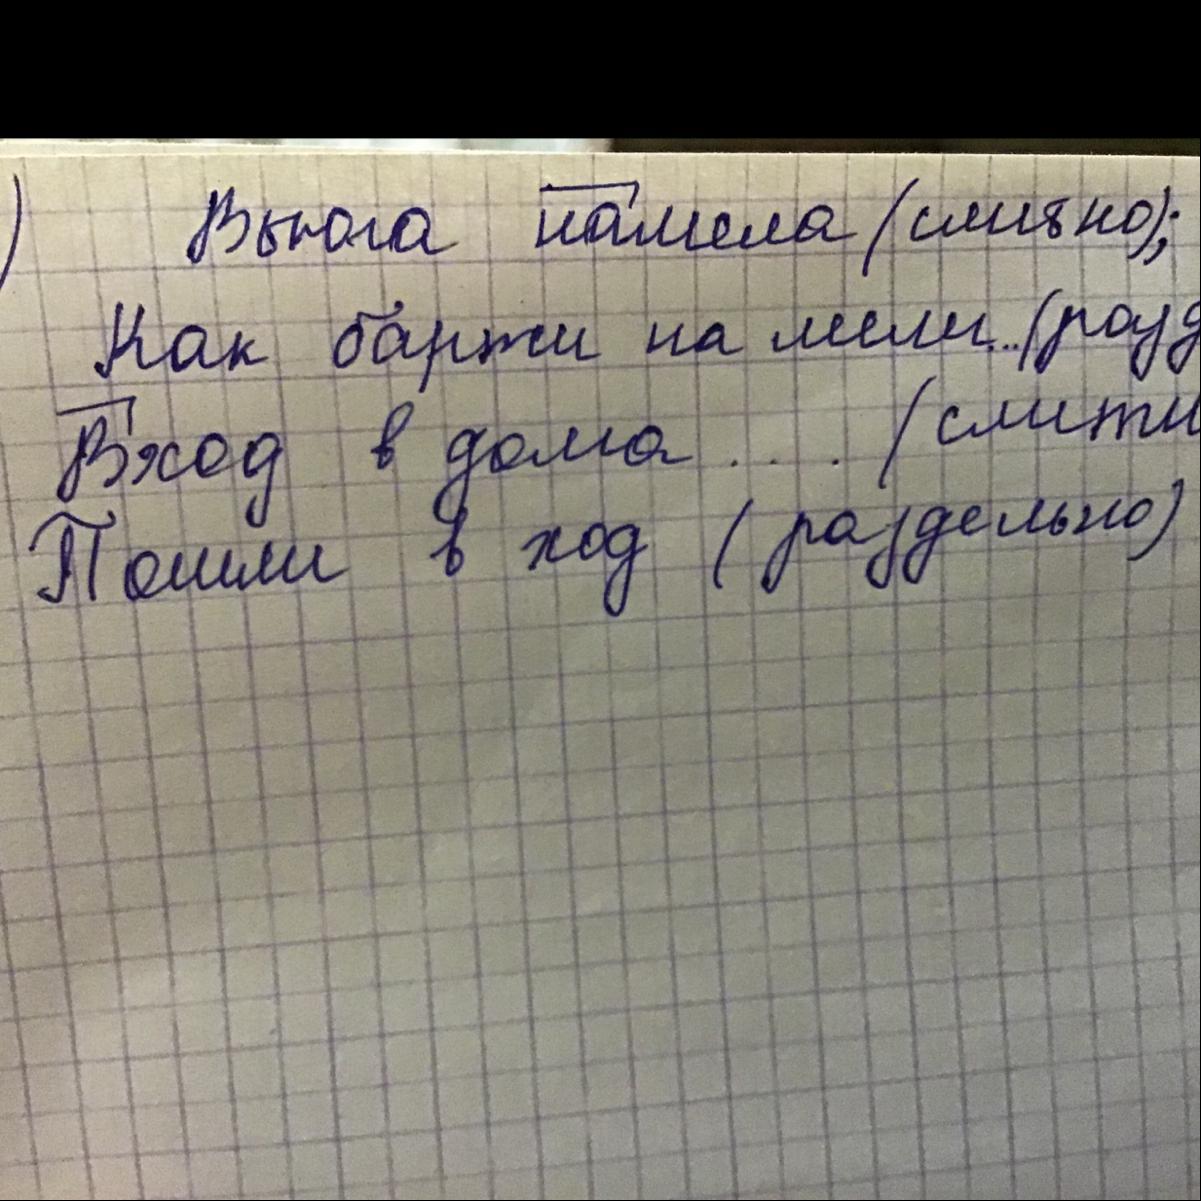 ) Вьюга намела (слитно);
Как баржи на мели... (разд
Вход в дома .... (слитн
Пошли в ход (раздельно)